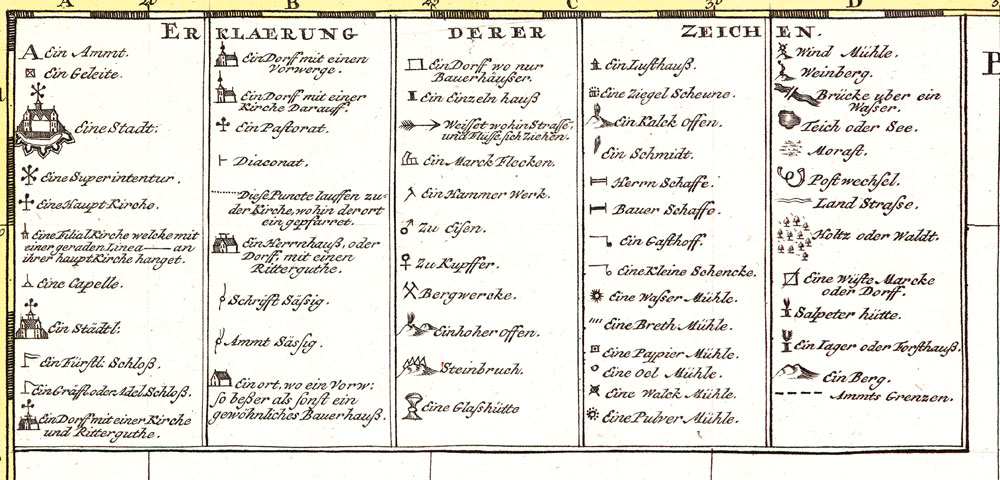 A B C D
ER KLAERUNG DERER ZEICH EN.
A Ein Ammt.
Ein Geleite.
Eine Stadt:
Eine Superintentur.
Eine Haupt-Kirche.
Eine Filial Kirche welche mit
einer geraden Linea an
ihrer haupt Kirche hanget.
Eine Capelle.
Ein Städtl:
Ein Fürstl: Schloß.
Ein Gräfl oder Adel Schloß.
Ein Dorff mit einer Kirche
und Ritterguthe.
Ein Dorff mit einen
Vorwerge.
Ein Dorff mit einer
Kirche Darauff.
Ein Pastorat.
Diaconat.
Dieße Puncte lauffen zu-
der Kirche, wohin der ort
ein gepfarret.
Ein Herrnhauß, oder
Dorff, mit einen
Ritterguthe.
Schrifft Säßig.
Ammt Säßig.
Ein ort, wo ein Vorw:
so beßer als sonst ein
gewöhnliches Bauerhauß.
Ein Dorff wo nur
Bauerhäußer.
Ein Einzeln hauß
Weißet wohin Straße,
und Flüße sich Ziehen.
Ein Marck Flecken.
Ein Hammer Werk.
Zu Eisen.
Zu Kupffer.
Bergwercke.
Ein hoher Offen.
Steinbruch.
Eine Glaßhütte
Ein Lufthauß.
Eine Ziegel Scheune.
Ein Kalck Offen.
Ein Schmidt.
Herrn Schaffe.
Bauer Schaffe.
Ein Gasthoff.
Eine Kleine Schencke.
Eine Waßer Mühle.
Eine Breth Mühle.
Eine Pappier Mühle.
Eine Oel Mühle.
Eine Walck Mühle.
Eine Pulver Mühle.
Wind Mühle.
Weinberg.
Brücke uber ein
Waßer.
Teich oder See.
Morast.
Post wechsel.
Land Straße.
Holtz oder Waldt.
Eine Wüste Marcke
oder Dorff.
Salpeter hütte.
Ein Iager oder Forsthauß.
Ein Berg.
Ammts Grenzen.